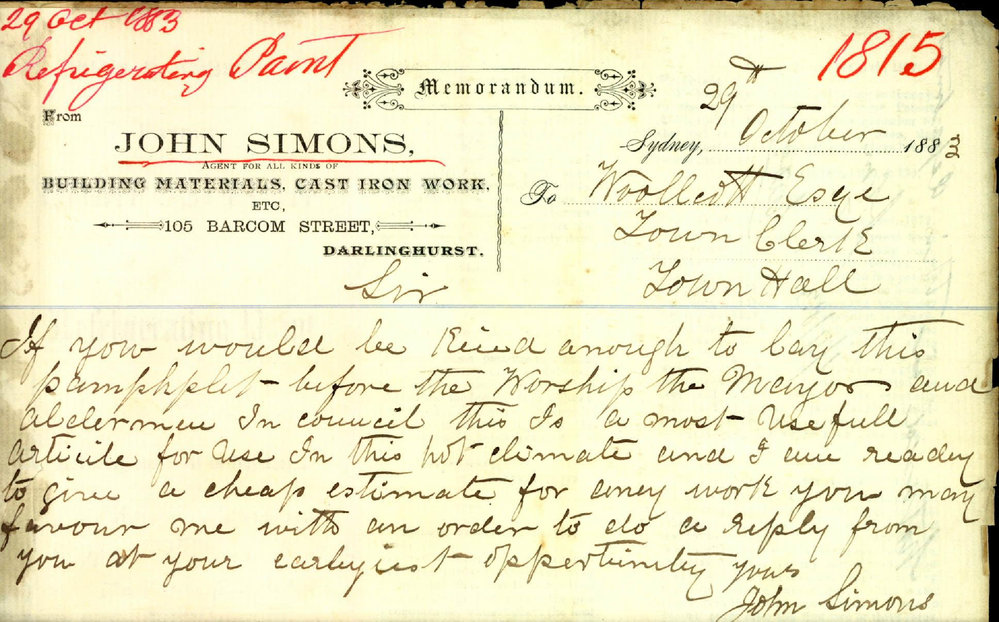 29 Oct 1883
Refrigerating Paint
1815
Memorandum.
29th October
Sydney, 1883
From
JOHN SIMONS,
AGENT FOR ALL KINDS OF
BUILDING MATERIALS, CAST IRON WORK,
ETC,
105 BARCOM STREET,
DARLINGHURST.
To Woollcott Esqe
Town Clerk
Town Hall
Sir
If you would be kind anough to lay this
pamphplet before the Worship the Mayor and
aldermen In council this Is a most usefull
articile for use In this hot climate and I am ready
to give a cheap estimate for aney work you may
favour me with an order to do a reply from
you at your earlyiest oppertunity yours
John Simons